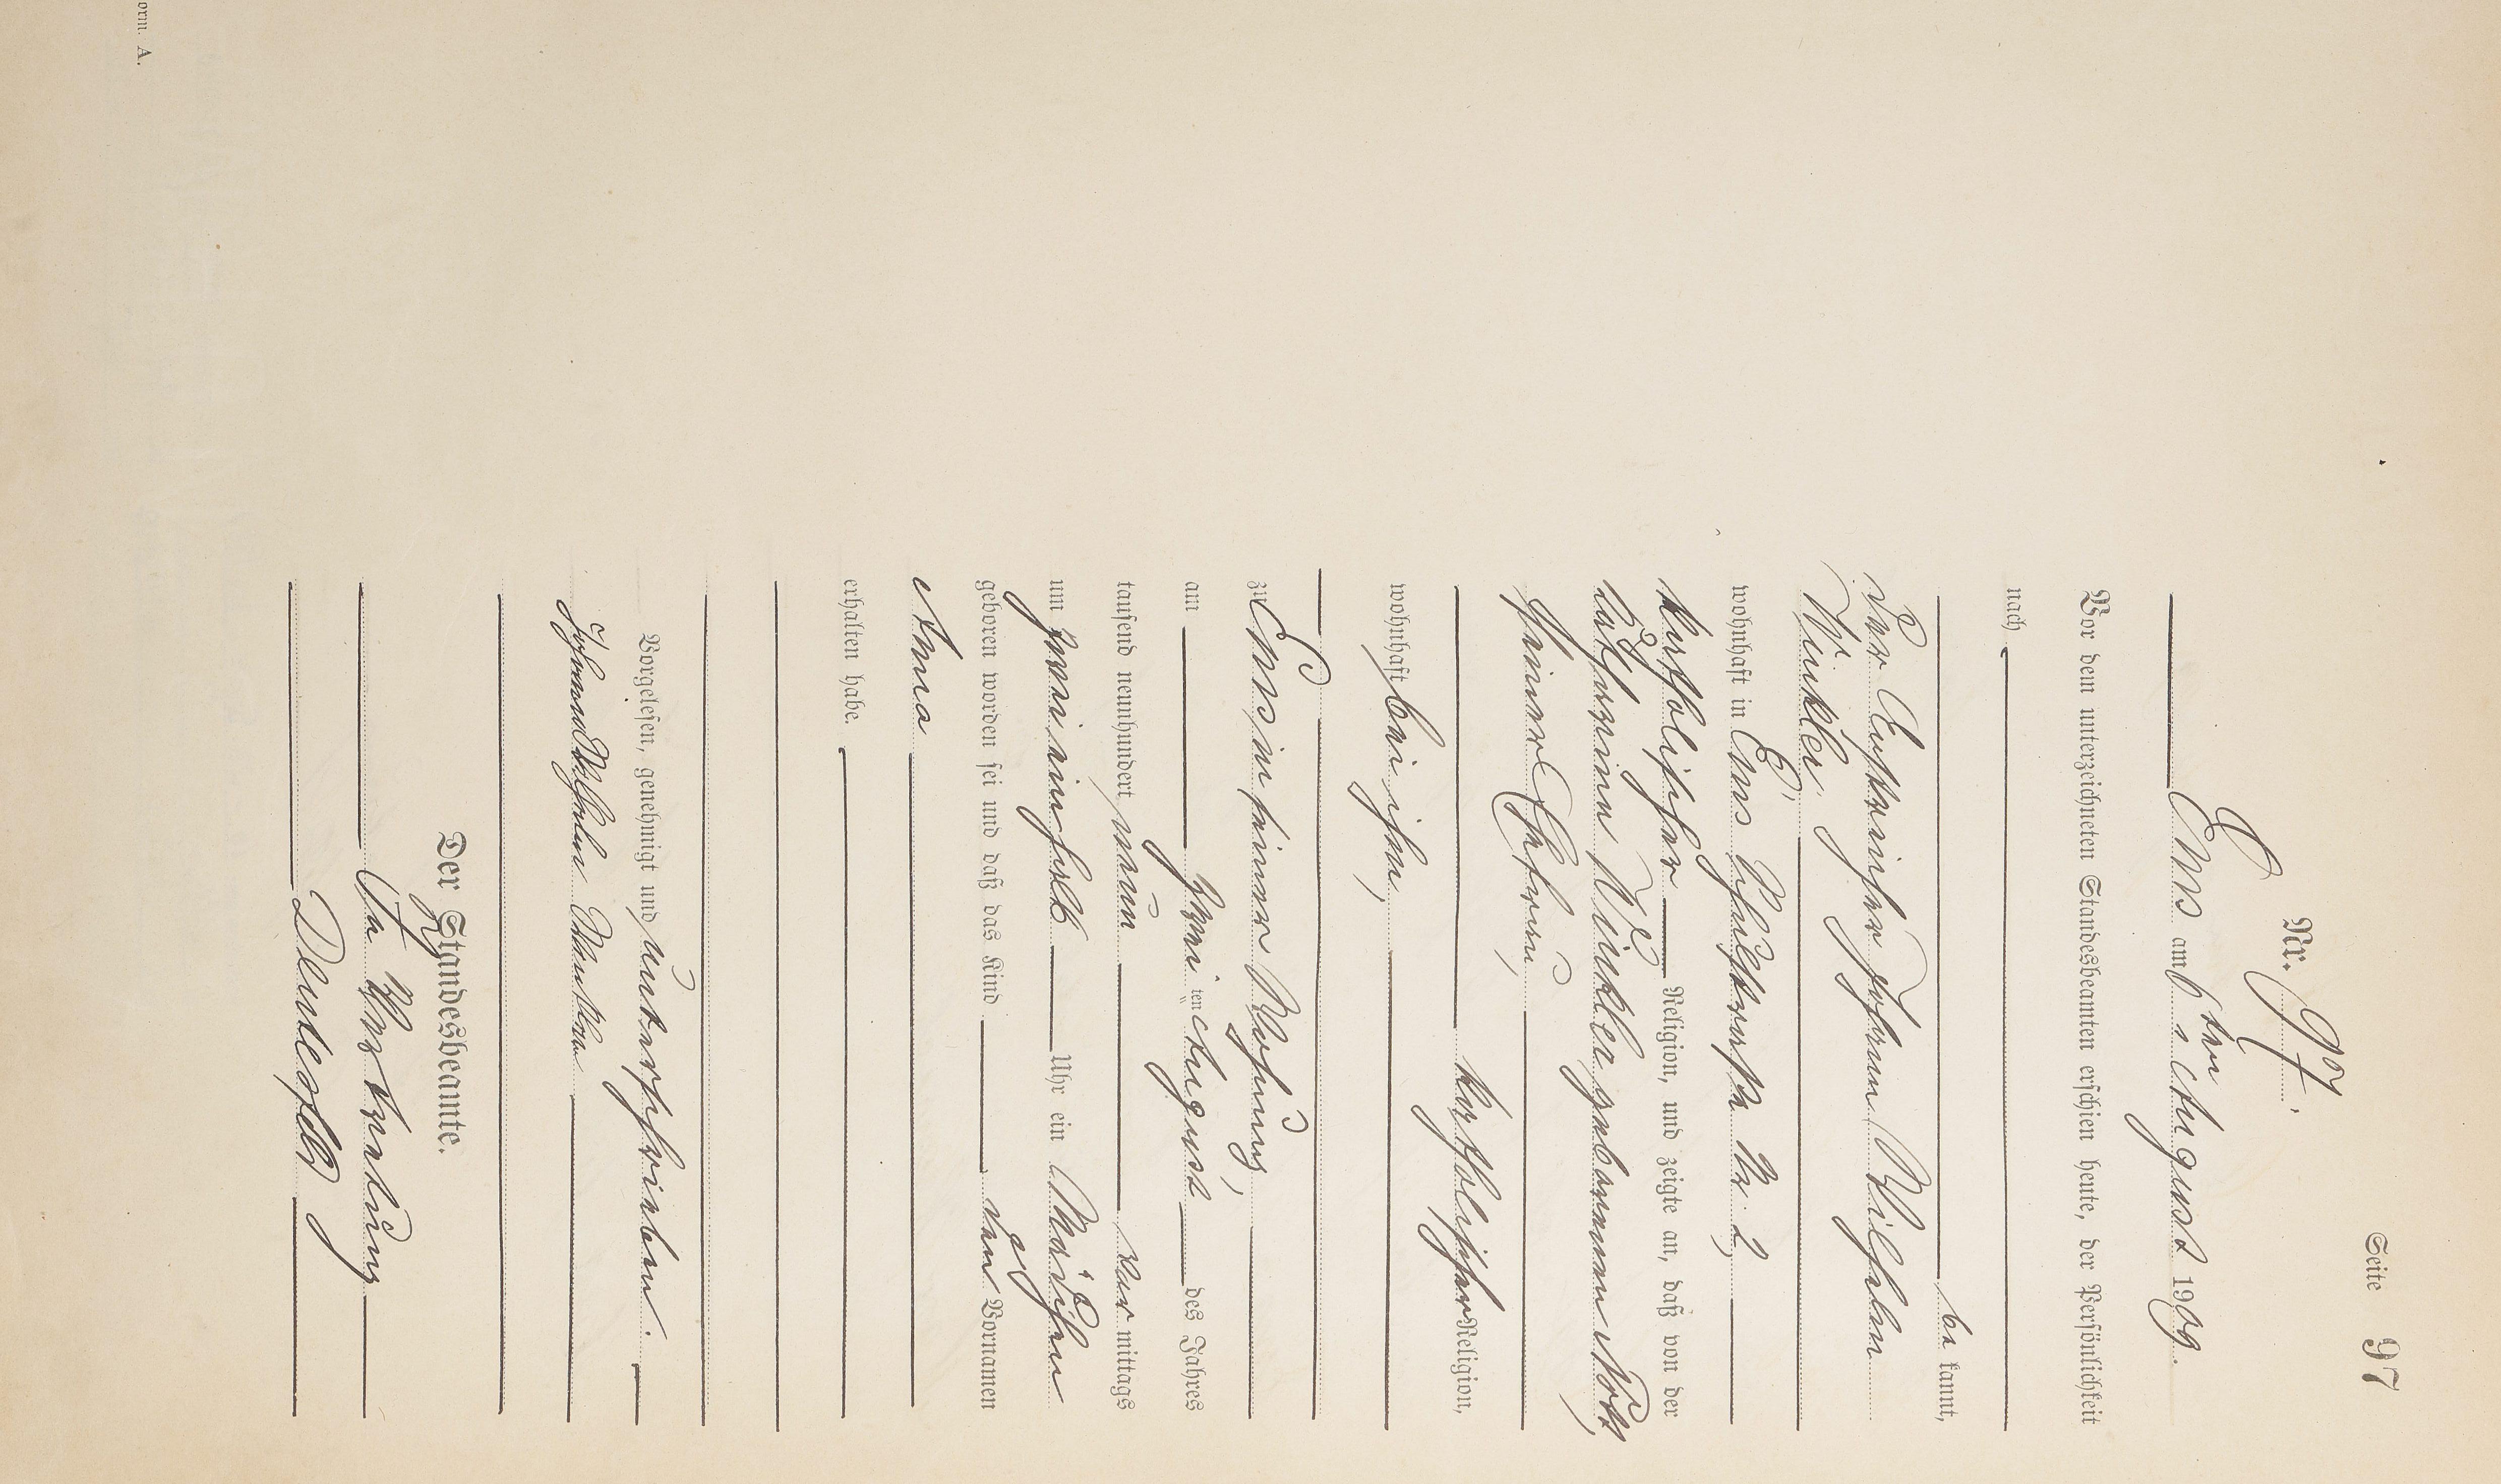 Seite 97
Nr. 97.
Ems am 6ten August 1909.
Vor dem unterzeichneten Standesbeamten erschien heute, der Persönlichkeit
nach
be kannt,
der Johann Wilhelm
Winkler,
wohnhaft in Ems, Schulstraße Nr. 2,
katholischer Religion, und zeigte an, daß von der
Winkler geborenen
seiner Ehefrau,
katholischer Religion,
wohnhaft bei ihm,
zu Ems, in seiner Wohnung,
am zwei ten August des Jahres
tausend neunhundert neun Vor mittags
um zwei einhalb Uhr ein Mädchen
geboren worden sei und daß das Kind den Vornamen
Anna
erhalten habe.
Vorgelesen, genehmigt und unterschrieben.
Johann Wilhelm Winkler
Der Standesbeamte.
In Vertretung
orm. A.